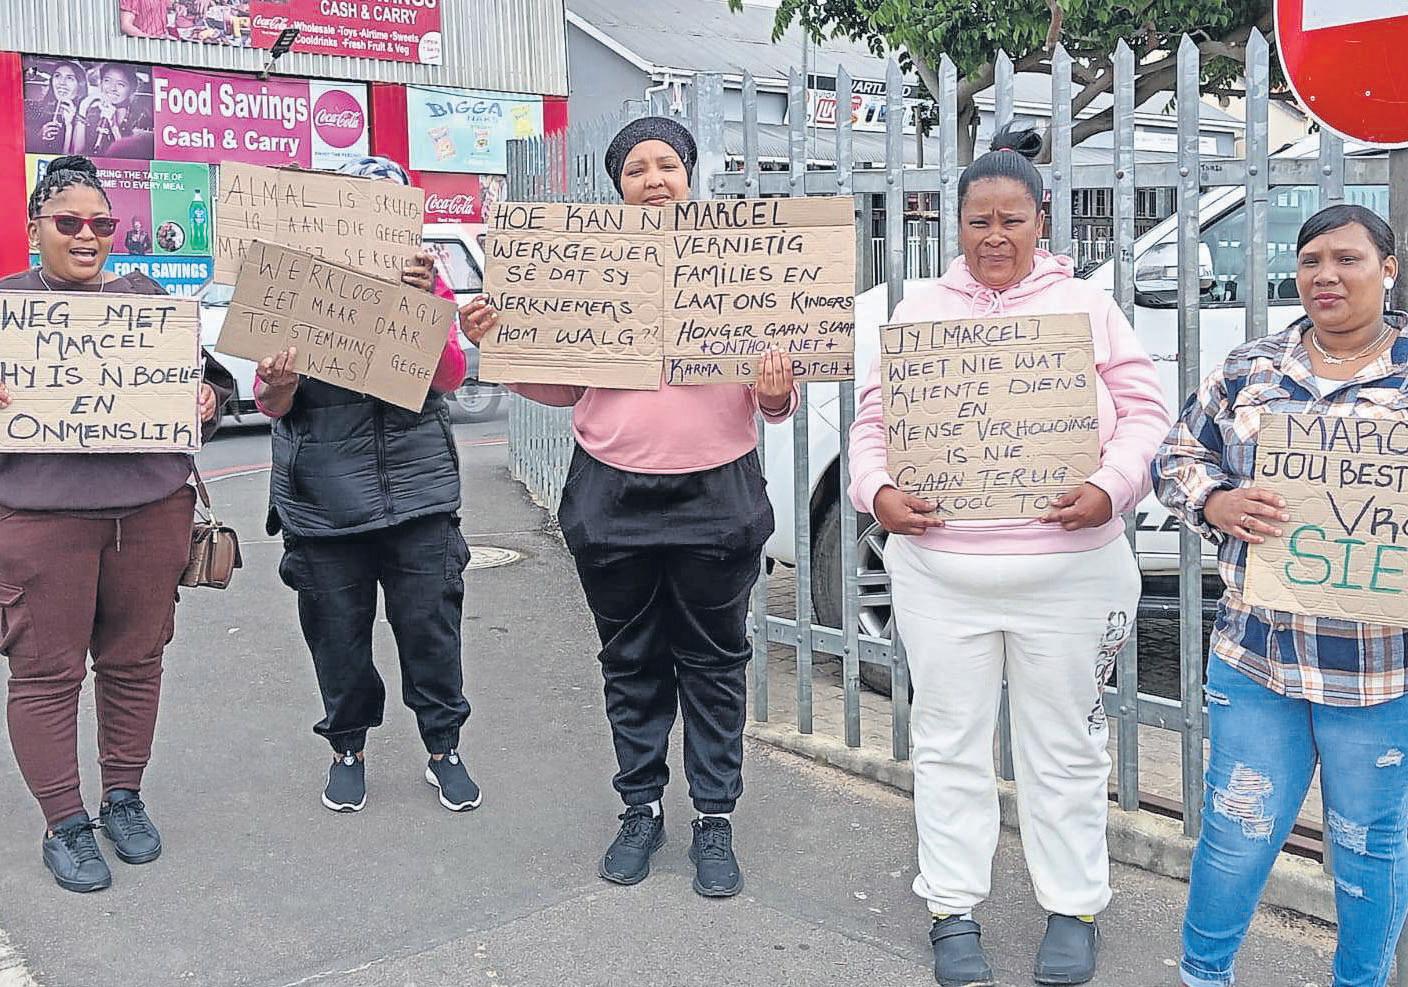 CASH & CARRY
Wholesale -Toys -Airtime -Sweets
Cooldrinks -Fresh Fruit & Veg
Coca-Cola
Food Savings
Cash & Carry
Coca-Cola
BIGGA
NAKS
BRING THE TASTE OF
HOME TO EVERY MEAL
FOOD SAVINGS
Coca-Cola
WEG MET
MARCEL
HY IS 'N BOELIE
EN
ONMENSLIK
ALMAL IS SKULD-
IG AAN DIE
WERKLOOS AGV
EET MAAR DAAR
TOESTEMMING GEGEE
WAS!
HOE KAN 'N
WERKGEWER
SÊ DAT SY
WERKNEMERS
HOM WALG??
MARCEL
VERNIETIG
FAMILIES EN
LAAT ONS KINDERS
HONGER GAAN SLAAP
+ONTHOU NET+
KARMA IS BITCH+
JY [MARCEL]
WEET NIE WAT
KLIENTE DIENS
EN
MENSE VERHOUDINGE
IS NIE.
GAAN TERUG
SKOOL TOE
MARC
JOU BEST
VR
SIE